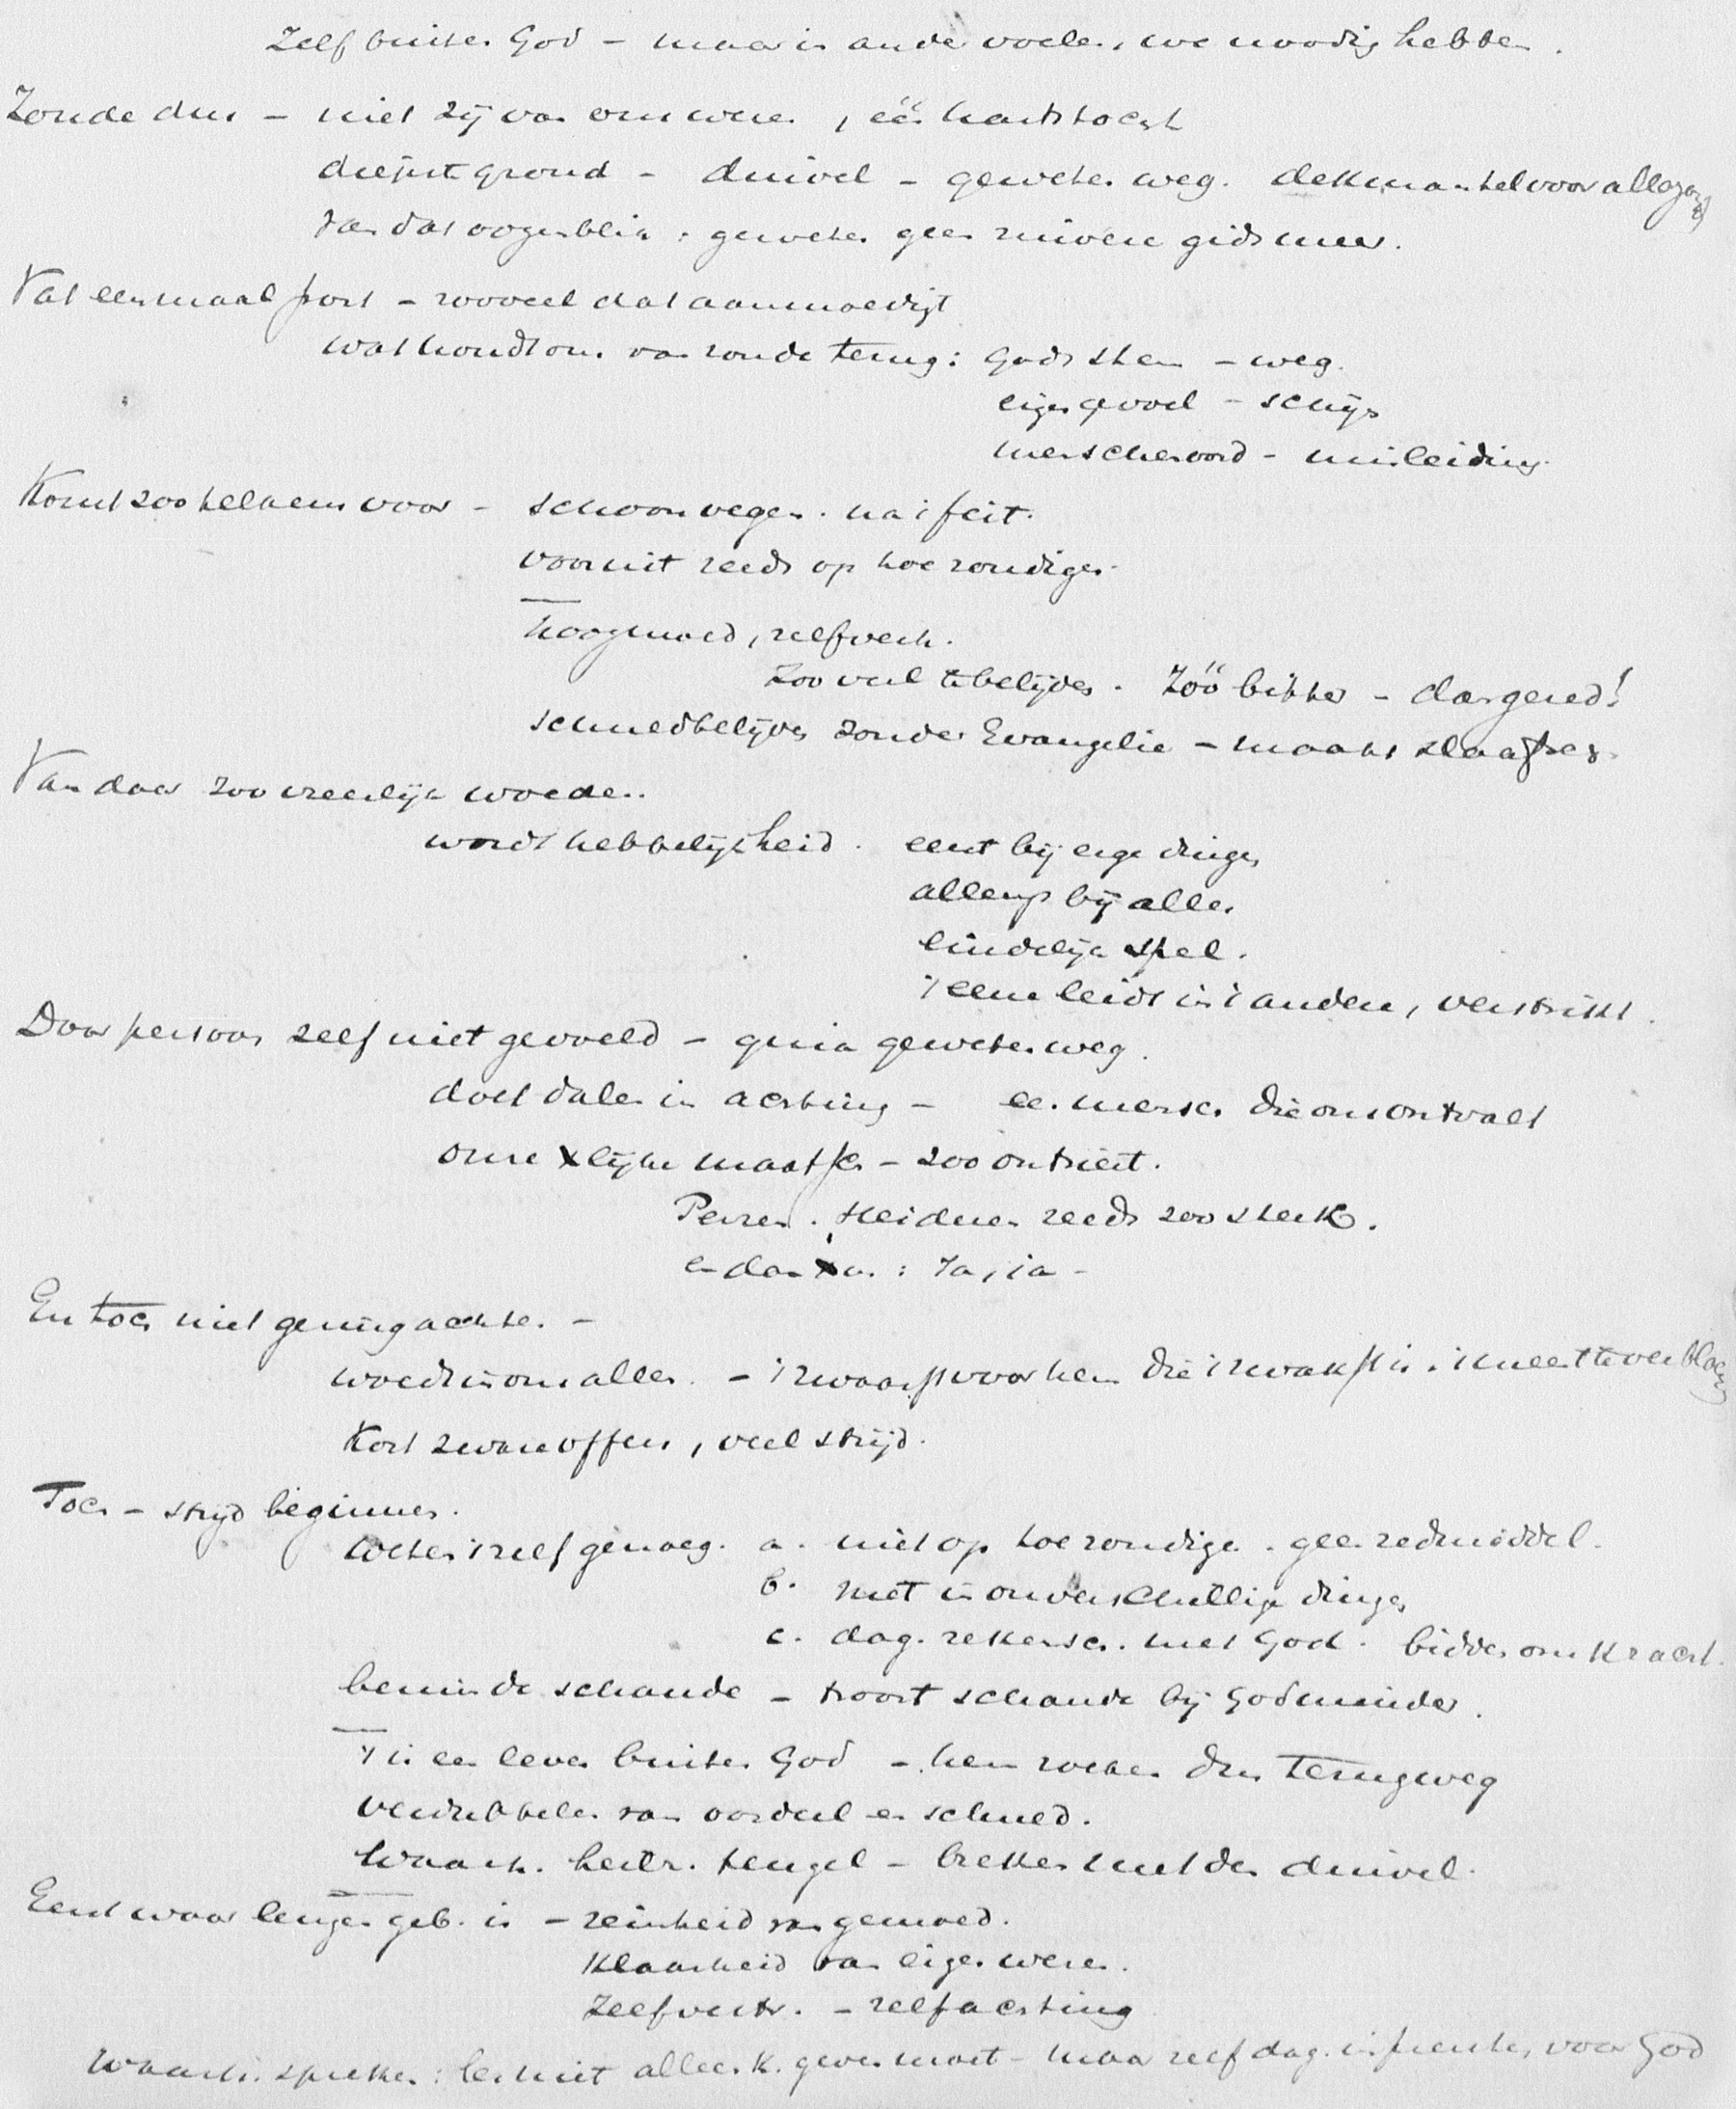 Zelf buiten God – maar in ander voelen, we noodig hebben.
Zonde dus – niet zij van ons wezen, één hartstocht
diepste grond – duivel – geweten weg. dekmantel voor alle
Van dat oogenblik : geweten geen zuivere gids meer.
Vat eenmaal post – zooveel dat aanmoedigt
wat houdt ons van zonde terug : Gods stem – weg.
eigen gevoel – schijn
menschenoord – misleiding.
Komt zoo telkens voor – schoonvegen. na 't feit.
vooruit reeds op toe zondigen.
hoogmoed, zelfverh.
Zoo veel te belijden. Zóó bitter – dan gered!
schuldbelijden zonder Evangelie – maakt slaafser.
Van daar zoo vreeslijk woeden.
wordt hebbelijkheid. eerst bij erge dingen
allengs bij alles
eindelijk spel.
't eene leidt in 't andere, verstrikt.
Door persoon zelf niet gevoeld – quia geweten weg.
doet dalen in achting – een mensch die ons ontvalt
onze Xlijke maatsch. – zoo ontsiert.
Perzen. Heidenen reeds zoo sterk.
en dan Xus : Ja, ja –
En toch niet gering achten. –
woedt in ons allen. – 't zwaarst voor hen die 't zwakst is.
Kost zware offers, veel strijd.
Toch – strijd beginnen.
weten 't zelf genoeg. a. niet op toe zondigen. geen redmiddel.
b. niet in onverschillige dingen
c. dag. rekensch. met God. bidden om kracht.
bemin de schande – troost schande bij God minder.
't is een leven buiten God – hem zoeken dus terugweg
verdubbelen van oordeel en schuld.
Waarh. herstr. teugel – breken met den duivel.
Eerst waar leugen geb. is – reinheid van gemoed.
Klaarheid van eigen wezen.
Zelfvertr. – zelfachting
Waarh. spreken : les niet alleen k. geven moet – maar zelf dag. inprenten, voor God